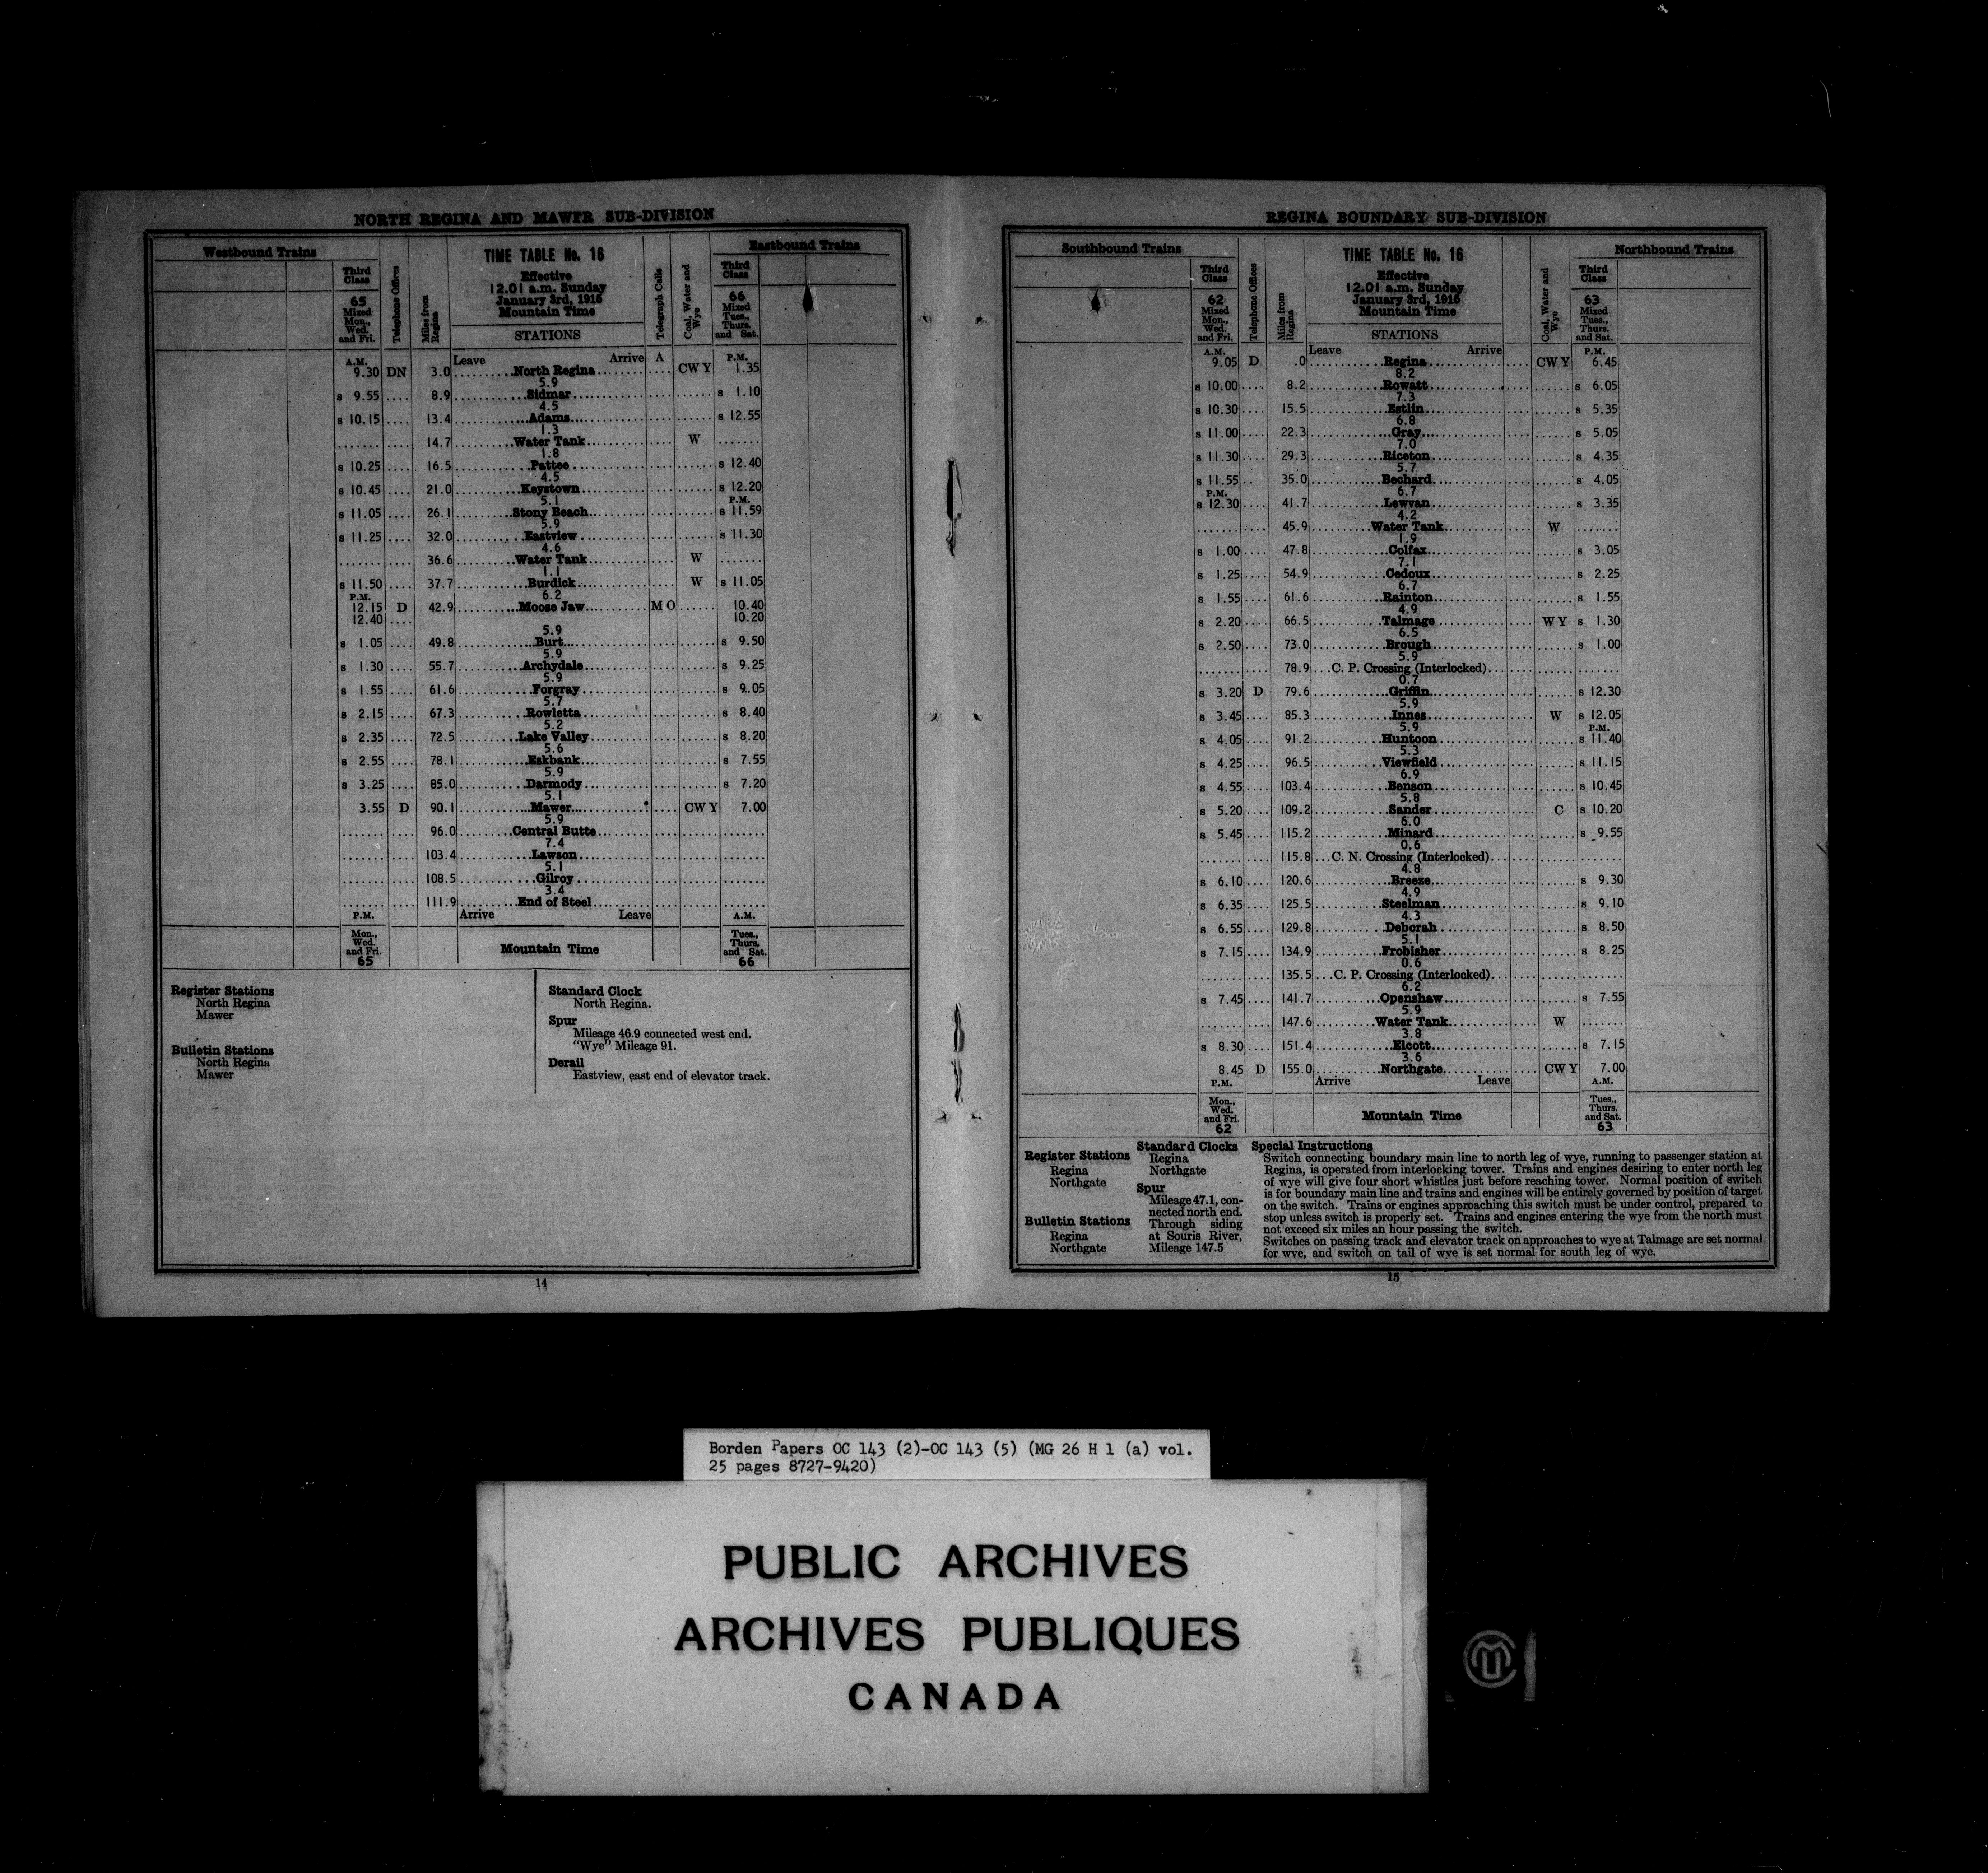 NORTH REGINA AND MAWER SUB-DIVISION
Westbound Trains
Telephone Offices
Miles from Regina
TIME TABLE No. 16
Effective
12.01 a.m. Sunday
January 3rd, 1915
Mountain Time
STATIONS
Telegraph Calls
Coal, Water and Wye
Eastbound Trains
Third Class
65
Mixed
Mon.,
Wed.
and Fri.
Third Class
66
Mixed
Tues.,
Thurs.
and Sat.
Leave Arrive
A.M. P.M.
9.30 DN 3.0 North Regina A CW Y 1.35
5.9
s 9.55 8.9 Sidmar s 1.10
4.5
s 10.15 13.4 Adams s 12.55
1.3
14.7 Water Tank W
1.8
s 10.25 16.5 Pattee s 12.40
4.5
s 10.45 21.0 Keystown s 12.20
5.1 P.M.
s 11.05 26.1 Stony Beach s 11.59
5.9
s 11.25 32.0 Eastview s 11.30
4.6
36.6 Water Tank W
1.1
s 11.50 37.7 Burdick W s 11.05
P.M. 6.2
12.15 D 42.9 Moose Jaw M O 10.40
12.40 10.20
5.9
s 1.05 49.8 Burt s 9.50
5.9
s 1.30 55.7 Archydale s 9.25
5.9
s 1.55 61.6 Forgray s 9.05
5.7
s 2.15 67.3 Rowletta s 8.40
5.2
s 2.35 72.5 Lake Valley s 8.20
5.6
s 2.55 78.1 Eskbank s 7.55
5.9
s 3.25 85.0 Darmody s 7.20
5.1
3.55 D 90.1 Mawer CW Y 7.00
5.9
96.0 Central Butte
7.4
103.4 Lawson
5.1
108.5 Gilroy
3.4
111.9 End of Steel
P.M. Arrive Leave A.M.
Mon.,
Wed.
and Fri.
65
Mountain Time
Tues.,
Thurs.
and Sat.
66
Register Stations
North Regina
Mawer
Bulletin Stations
North Regina
Mawer
Standard Clock
North Regina.
Spur
Mileage 46.9 connected west end.
"Wye" Mileage 91.
Derail
Eastview, east end of elevator track.
14
REGINA BOUNDARY SUB-DIVISION
Southbound Trains
Telephone Offices
Miles from Regina
TIME TABLE No. 16
Effective
12.01 a.m. Sunday
January 3rd, 1915
Mountain Time
STATIONS
Coal, Water and Wye
Northbound Trains
Third Class
62
Mixed
Mon.,
Wed.
and Fri.
Third Class
63
Mixed
Tues.,
Thurs.
and Sat.
Leave Arrive
A.M. P.M.
9.05 D .0 Regina CW Y 6.45
8.2
s 10.00 8.2 Rowatt s 6.05
7.3
s 10.30 15.5 Estlin s 5.35
6.8
s 11.00 22.3 Gray s 5.05
7.0
s 11.30 29.3 Riceton s 4.35
5.7
s 11.55 35.0 Bechard s 4.05
P.M. 6.7
s 12.30 41.7 Lewvan s 3.35
4.2
45.9 Water Tank W
1.9
s 1.00 47.8 Colfax s 3.05
7.1
s 1.25 54.9 Cedoux s 2.25
6.7
s 1.55 61.6 Rainton s 1.55
4.9
s 2.20 66.5 Talmage W Y s 1.30
6.5
s 2.50 73.0 Brough s 1.00
5.9
78.9 C. P. Crossing (Interlocked)
0.7
s 3.20 D 79.6 Griffin s 12.30
5.9
s 3.45 85.3 Innes W s 12.05
5.9 P.M.
s 4.05 91.2 Huntoon s 11.40
5.3
s 4.25 96.5 Viewfield s 11.15
6.9
s 4.55 103.4 Benson s 10.45
5.8
s 5.20 109.2 Sander C s 10.20
6.0
s 5.45 115.2 Minard s 9.55
0.6
115.8 C. N. Crossing (Interlocked)
4.8
s 6.10 120.6 Breeze s 9.30
4.9
s 6.35 125.5 Steelman s 9.10
4.3
s 6.55 129.8 Deborah s 8.50
5.1
s 7.15 134.9 Frobisher s 8.25
0.6
135.5 C. P. Crossing (Interlocked)
6.2
s 7.45 141.7 Openshaw s 7.55
5.9
147.6 Water Tank W
3.8
s 8.30 151.4 Elcott s 7.15
3.6
8.45 D 155.0 Northgate CW Y 7.00
P.M. Arrive Leave A.M.
Mon.,
Wed.
and Fri.
62
Mountain Time
Tues.,
Thurs.
and Sat.
63
Register Stations
Regina
Northgate
Bulletin Stations
Regina
Northgate
Standard Clocks
Regina
Northgate
Spur
Mileage 47.1, con-
nected north end.
Through siding
at Souris River,
Mileage 147.5
Special Instructions
Switch connecting boundary main line to north leg of wye, running to passenger station at
Regina, is operated from interlocking tower. Trains and engines desiring to enter north leg
of wye will give four short whistles just before reaching tower. Normal position of switch
is for boundary main line and trains and engines will be entirely governed by position of target
on the switch. Trains or engines approaching this switch must be under control, prepared to
stop unless switch is properly set. Trains and engines entering the wye from the north must
not exceed six miles an hour passing the switch.
Switches on passing track and elevator track on approaches to wye at Talmage are set normal
for wye, and switch on tail of wye is set normal for south leg of wye.
15
Borden Papers OC 143 (2)-OC 143 (5) (MG 26 H 1 (a) vol.
25 pages 8727-9420)
PUBLIC ARCHIVES
ARCHIVES PUBLIQUES
CANADA